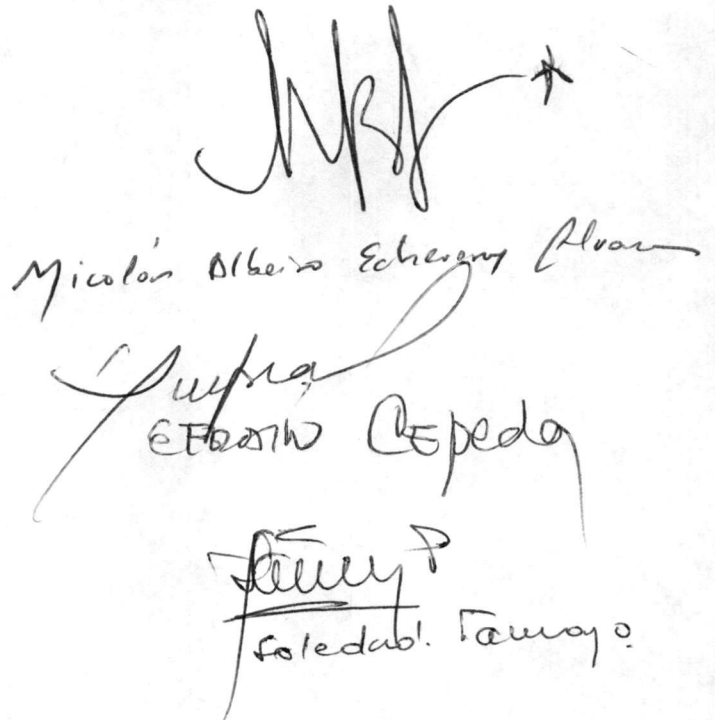 Nicolás Albeiro Echeverry Alvaran
EFRAIN CEpeda
Soledad. Tamayo.